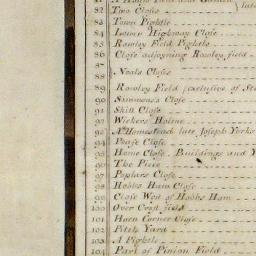 82 Two Closes
83 Town Pightle
84 Lower Highway Close
85 Rowley Field Pightle
86 Close adjoyning Rowley field
87
88 Neals Closes
89 Rowley Field (exclusive of
90 Simmons's Close
91 Skin Close
92 Wickers Holme
93 A Homestead late Joseph York
94 Pease Close
95 Home Close Buildings and Y
96 The Piece
97 Poplars Close
98 Hobbs Ham Close
99 Close West of Hobbs Ham
100 Over Croft field
101 Horn Corner Close
102 Pitch Yard
103 A Pightle
104 Part of Pinion Field